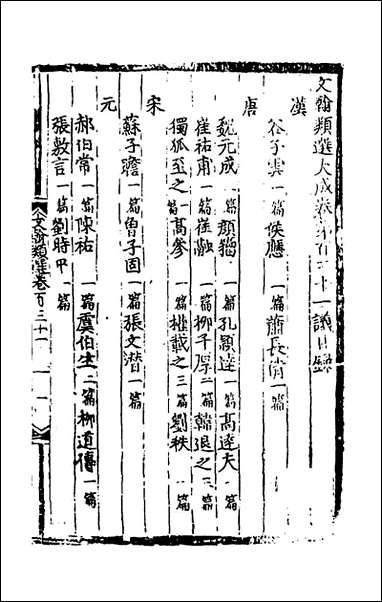 文翰類選大成卷第一百三十一 議目錄
漢
谷子雲一篇 侯應一篇 蕭長倩一篇
唐
魏元成一篇 顏籀一篇 孔穎達一篇 高達夫一篇
崔祐甫一篇 崔融一篇 柳子厚二篇 韓退之三篇
獨孤至之一篇 高參一篇 權載之三篇 劉秩一篇
宋
蘇子瞻一篇 曾子固一篇 張文潛一篇
元
郝伯常一篇 陳祐一篇 虞伯生二篇 柳道傳一篇
張敷言一篇 劉時中一篇
文翰類選卷一百三十一 一